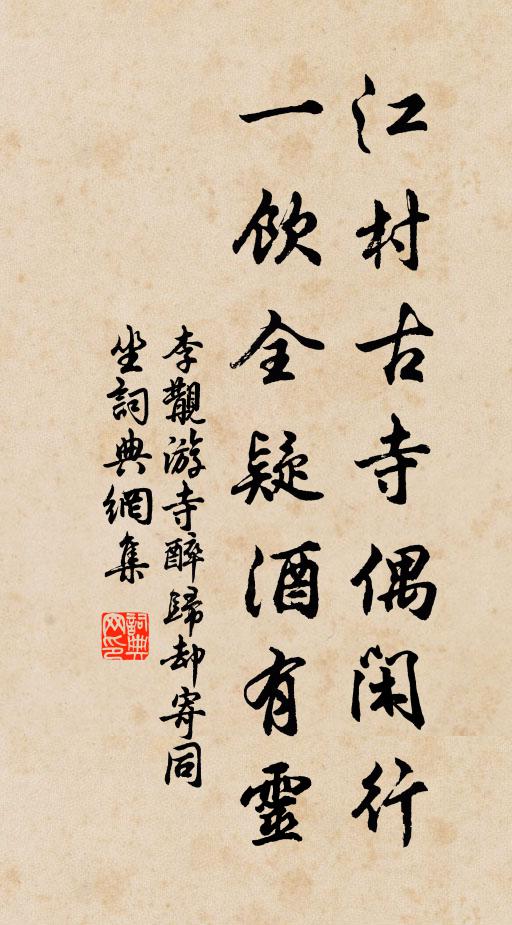 江村古寺偶閑行
一飲全疑酒有靈
李覯游寺醉歸却寄同
坐詞典網集
詞典
网印